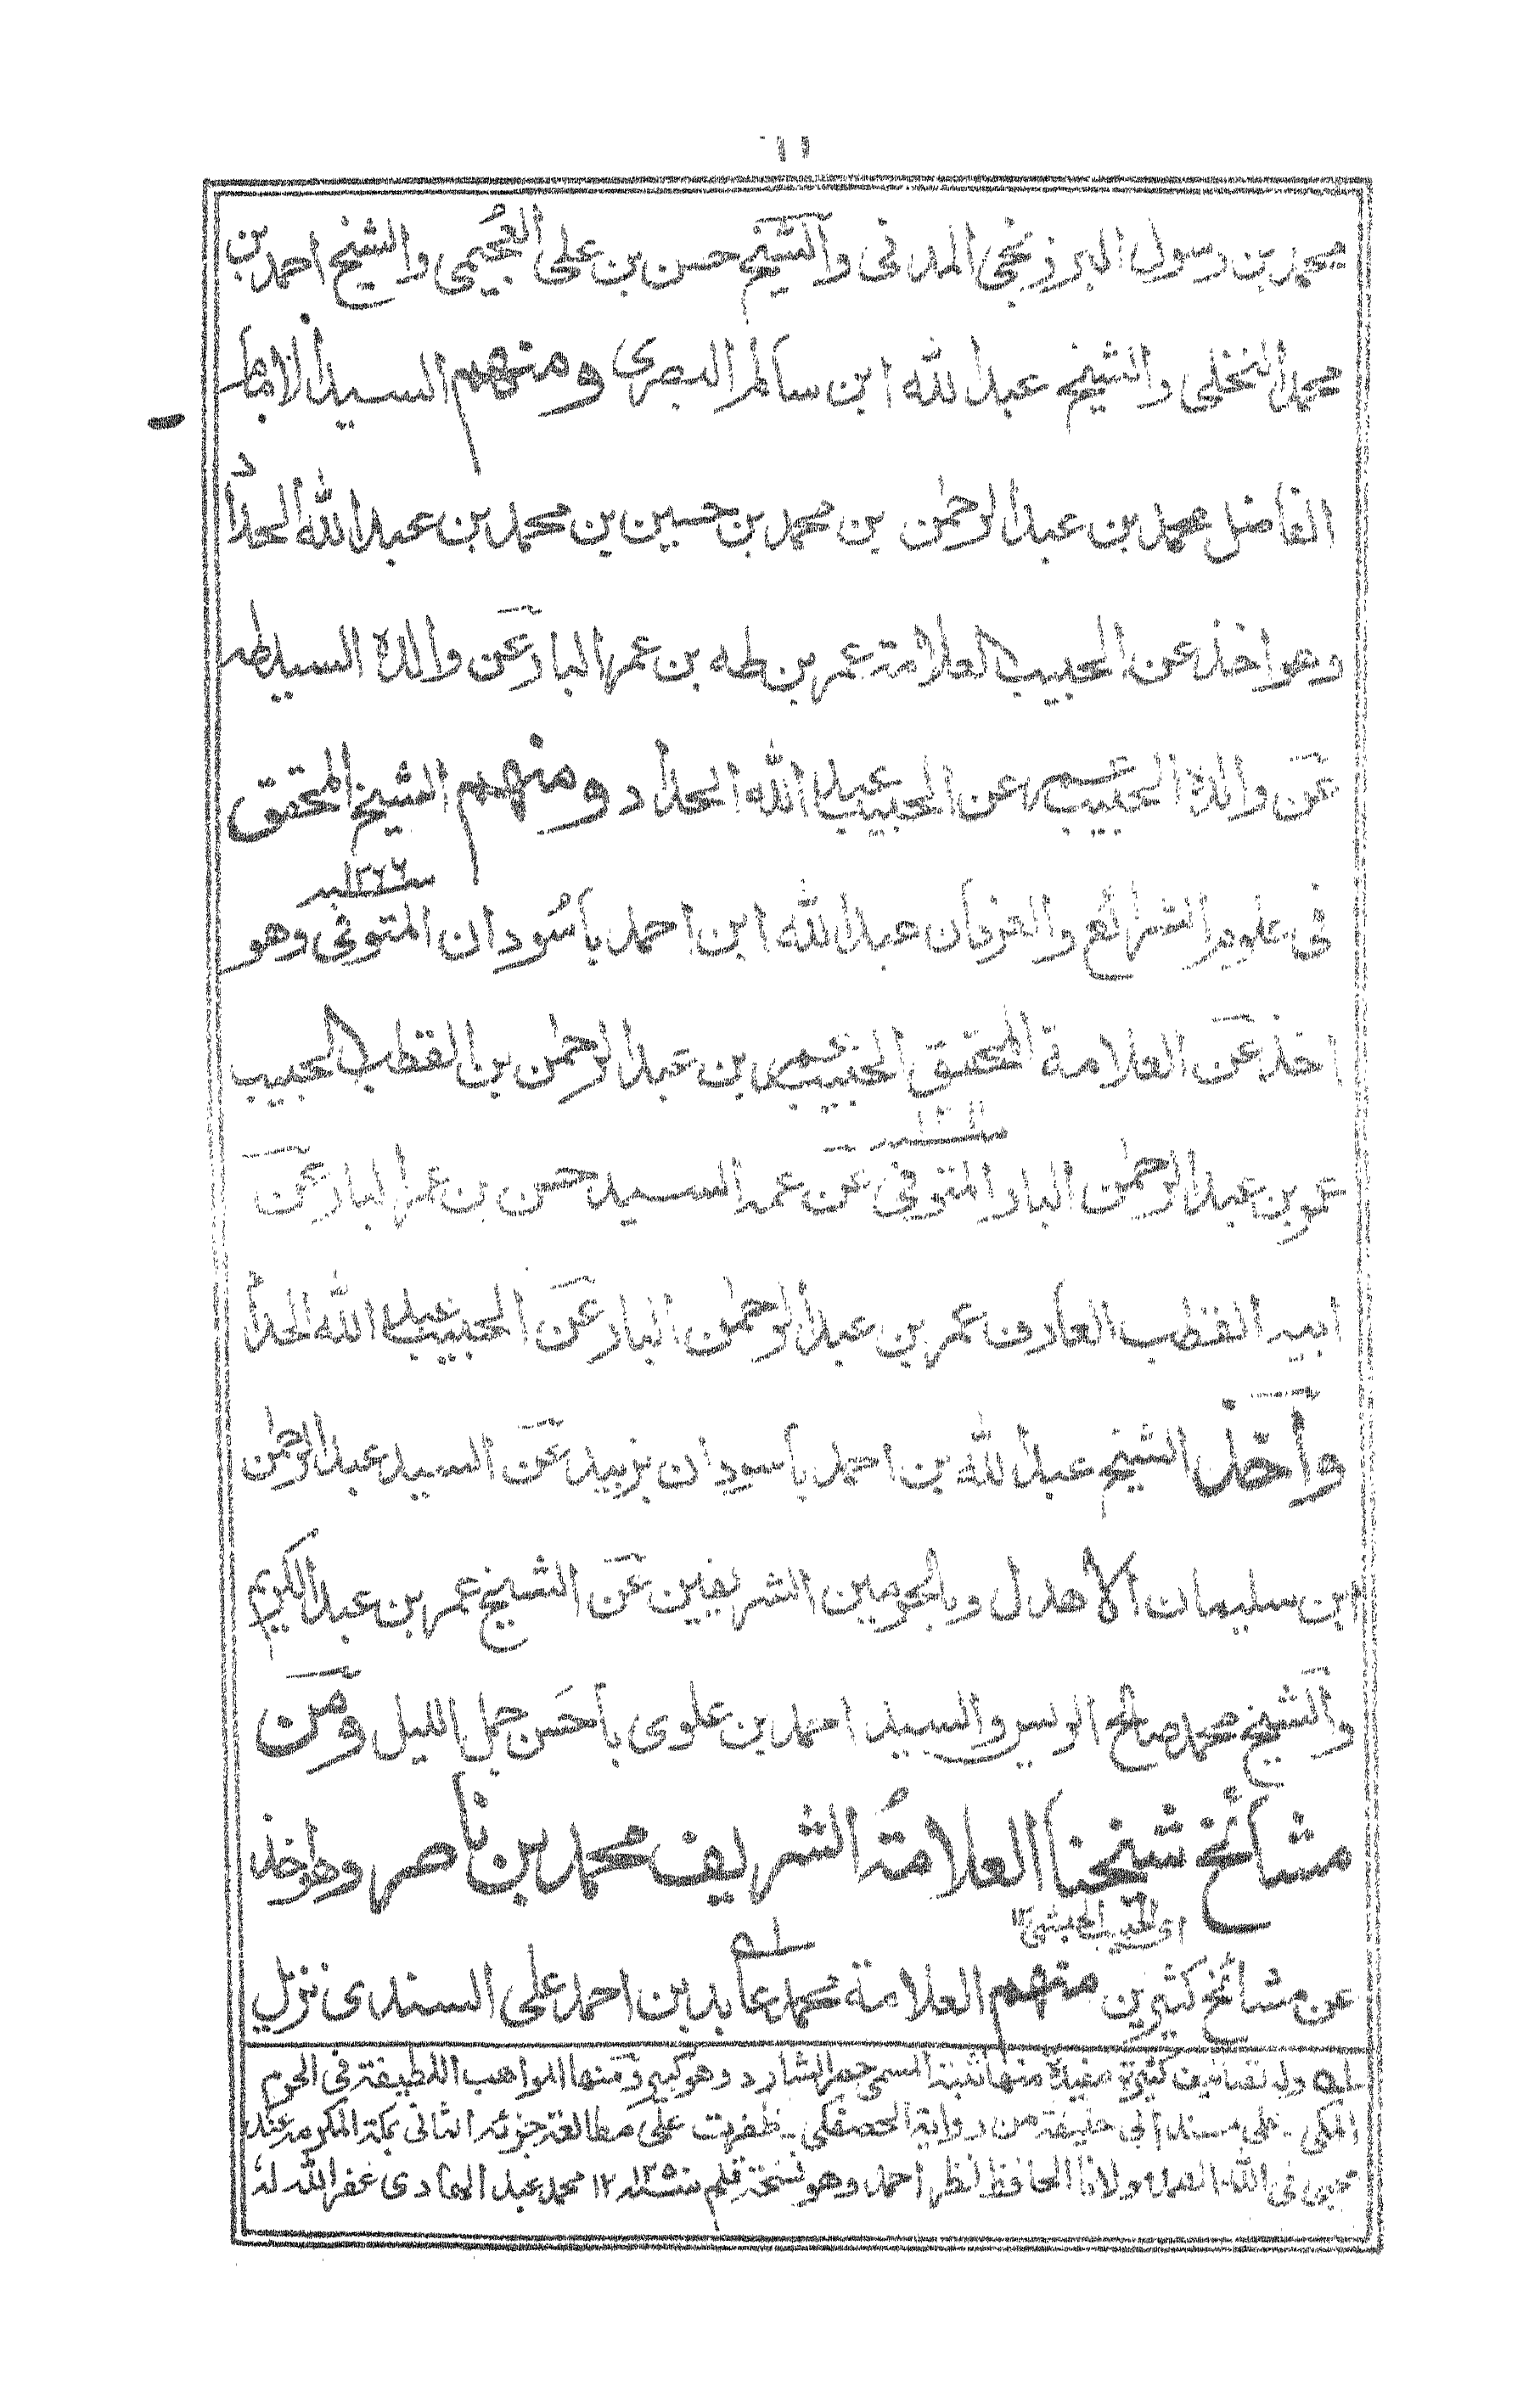 ١١
محمد بن رسول البرزنجى المدنى والشيخ حسن بن على العُجيمى والشيخ احمد بن
محمد النخلى والشيخ عبد الله ابن سالم البصرى ومنهم السيد الامام
الفاضل محمد بن عبد الرحمٰن بن محمد بن حسين بن محمد بن عبد الله الحداد
وهو اخذ عن الحبيب العلامة عمر بن طه بن عمر البار عن والده السيد طه
عن والده الحبيب عمر عن الحبيب عبد الله الحداد ومنهم الشيخ المحقق
فى علوم الشرائع والعرفان عبد الله ابن احمد باسُودان المتوفى سنة ١٢٦٦ وهو
اخذ عن العلامة المحقق الحبيب عمر بن عبد الرحمٰن بن القطب الحبيب
عمر بن عبد الرحمٰن البار المتوفى عن عمه السيد حسن بن عمر البار عن
ابيه القطب العارف عمر بن عبد الرحمٰن البار عن الحبيب عبد الله الحداد
وأخذ الشيخ عبد الله بن احمد باسودان بزبيد عن السيد عبد الرحمٰن
ابن سليمان الأهدل وبالحرمين الشريفين عن الشيخ عمر بن عبد الكريم
والشيخ محمد صالح الريس والسيد احمد بن علوى باحَسن جمل الليل ومن
مشائخ شيخنا العلامةُ الشريف محمد بن ناصر وهو اخذ
اى الحبيب الحبشى ١٢
عن مشائخ كثيرين منهم العلامة محمد عابد بن احمد على السندى نزيل
لہ وله تصانيف كثيرة مفيدة منها ثبته المسمى حصر الشارد وهو كبير ومنها المواهب اللطيفة فى الحرم
المكى ـ على مسند ابى حنيفة من رواية الحصفكى ـ ظفرت على مطالعة جزئه الثانى بمكة المكرمة عند
محبى فى الله مولانا الحافظ نظر احمد وهو نسخة قلم ١٢ محمد عبد الهادى غفر الله لهٗ